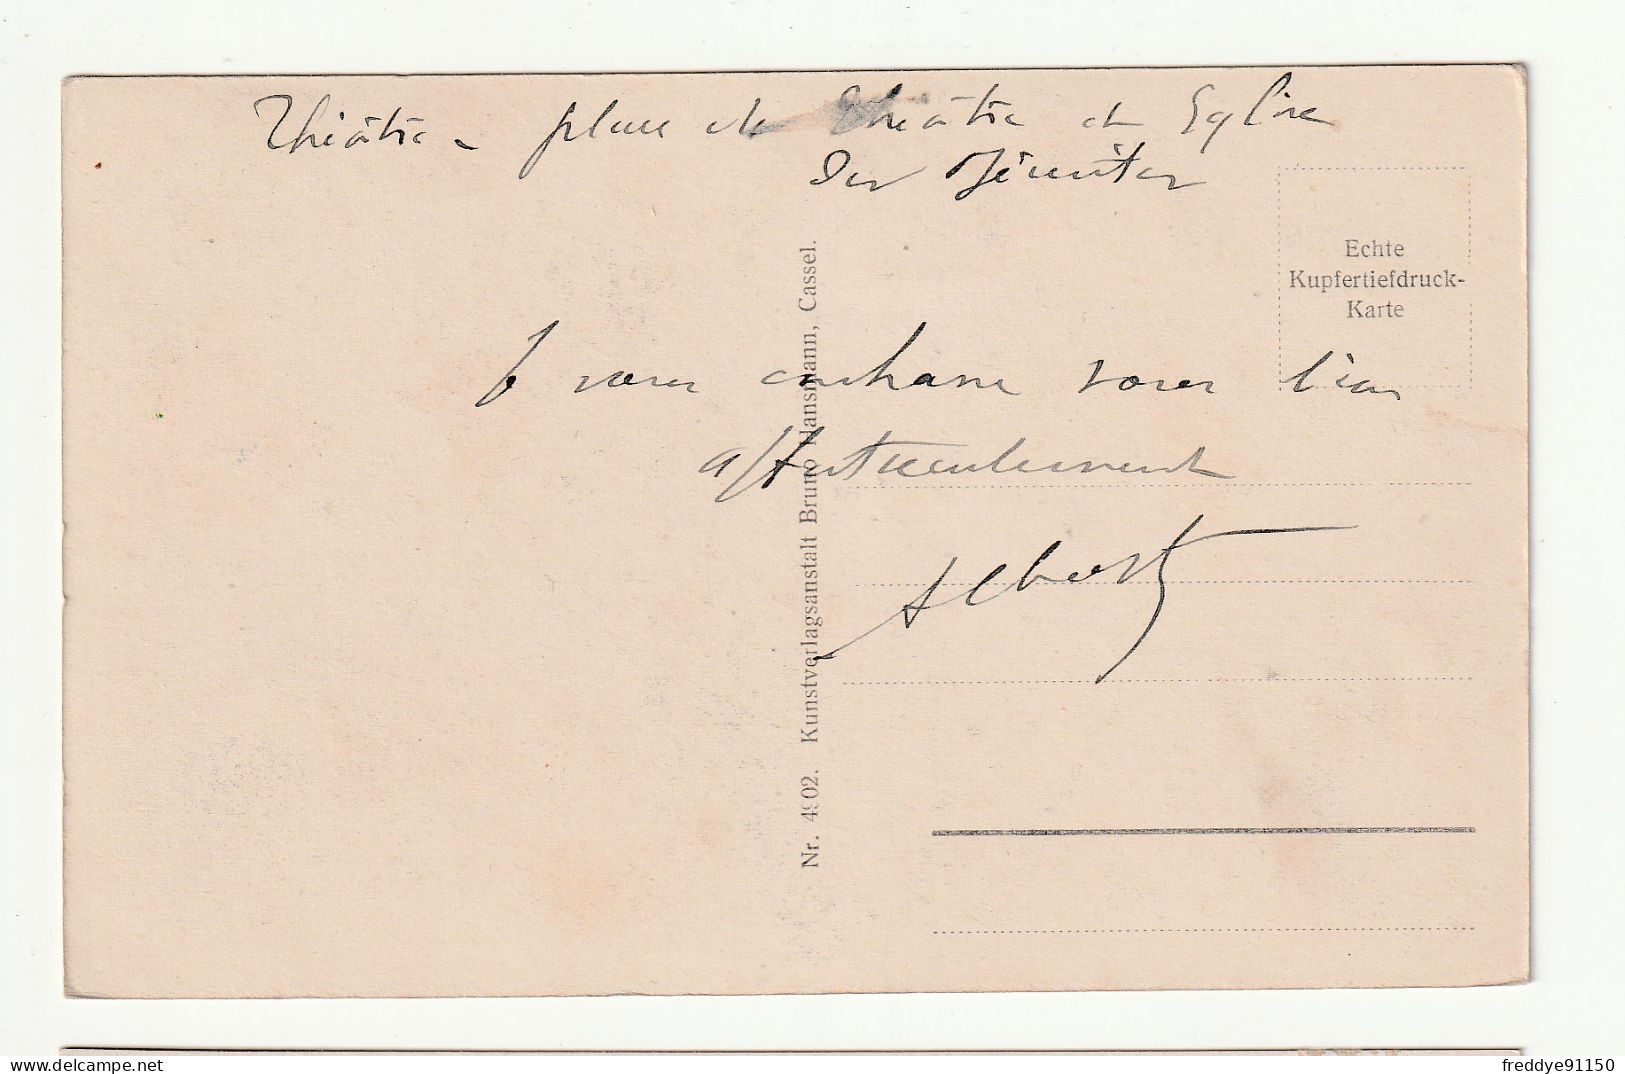 Théâtre - place du Théâtre et Eglise
des Jésuites
Echte
Kupfertiefdruck-
Karte
Je vous embrasse tous bien
affectueusement
Albert
Nr. 4902. Kunstverlagsanstalt Bruno Hansmann, Cassel.
delcampe.net
freddye91150